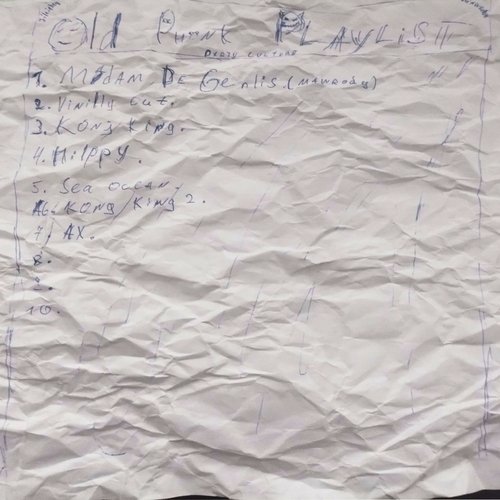 Old Punk PLAYLiST
1. MADAM DE Genlis. (
2. Vinilly cut.
3. KONg King.
4. Hilppy.
5. Sea ocean.
6. KONg King 2.
7. AX.
8.
9.
10.